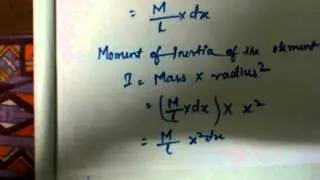 = M/L x dx
Moment of Inertia of the element
I = Mass x radius²
= (M/L x dx) x x²
= M/L x²dx